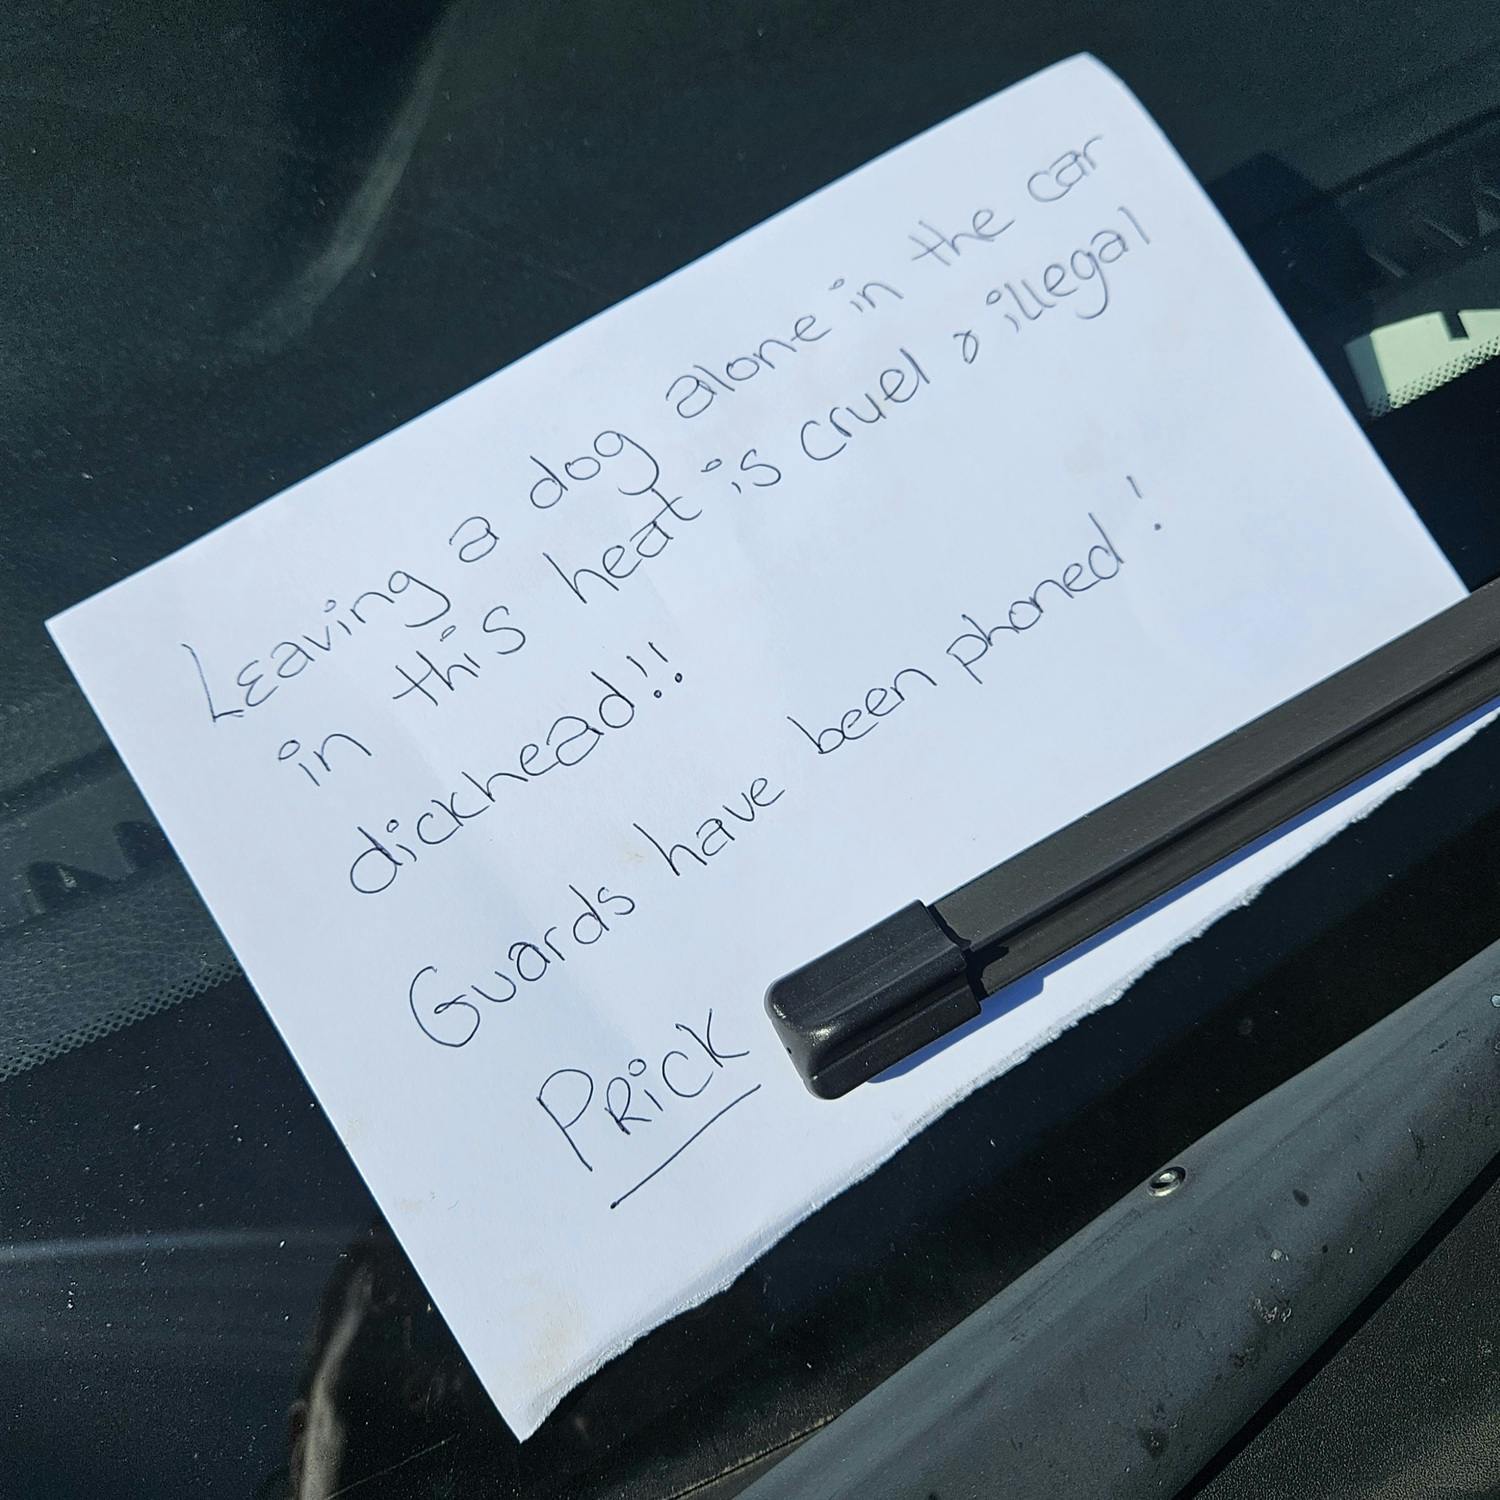 Leaving a dog alone in the car
in this heat is cruel & illegal
dickhead!!
Guards have been phoned!
PRiCK